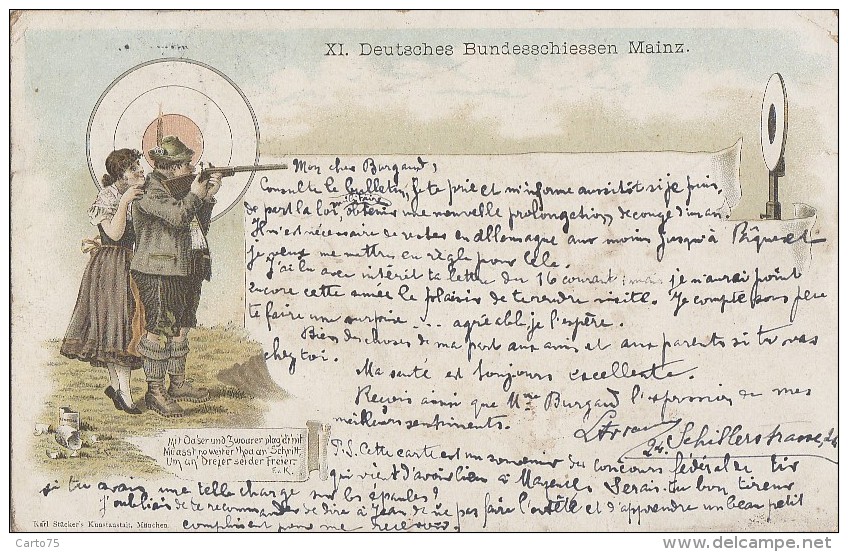 XI. Deutsches Bundesschiessen Mainz.
Mon cher Burgaud,
Consulte le bulletin, je te prie et m'informe aussitôt si je puis,
de part la loi, me faire obtenir une nouvelle prolongation de congé d'un an.
Il m'est nécessaire de rester en Allemagne au moins jusqu'à Pâques et
je veux me mettre en règle pour cela.
J'ai lu avec intérêt ta lettre du 16 courant; mais je n'aurai point
encore cette année le plaisir de te rendre visite. Je compte sous peu
te faire une surprise ... agréable, je l'espère.
Bien des choses de ma part aux amis et aux parents si tu vas
chez toi.
Ma santé est toujours excellente.
Reçois ainsi que Mme Burgaud l'expression de mes
meilleurs sentiments.
24, Schillerstrasse, 24
P.S. Cette carte est un souvenir des concours fédéral de tir
qui vient d'avoir lieu à Mayence. Serais-tu bon tireur
si tu avais une telle charge sur les épaules?
J'oubliais de te recommander de dire à Jean de ne pas faire l'entêté et d'apprendre un beau petit
compliment pour me recevoir.
Mit Oaser und Zwoarer plag di nit
Mi asst no weiter
Um an' Dreier sei der Freier.
F. v. K.
Karl Stücker's Kunstanstalt, München.
Carto75
delcampe.net